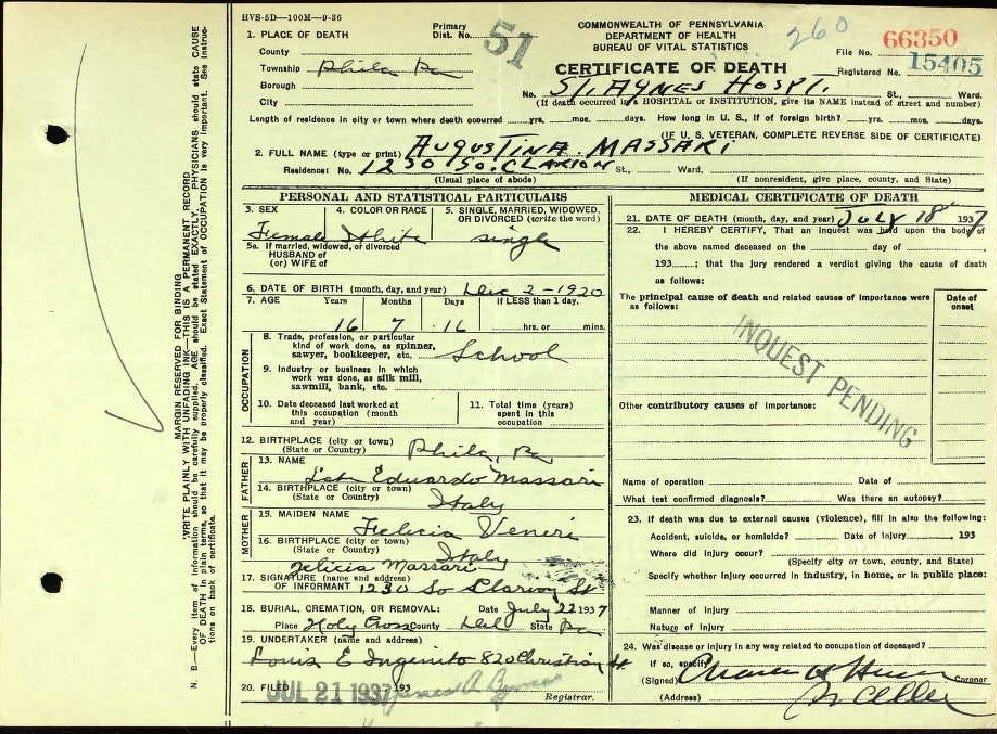 HVS-5D—100M—9-36
COMMONWEALTH OF PENNSYLVANIA
DEPARTMENT OF HEALTH
BUREAU OF VITAL STATISTICS
CERTIFICATE OF DEATH
Primary Dist. No. 51
260
File No. 66350
Registered No. 15405
1. PLACE OF DEATH
County
Township Phila Pa
Borough
City
No. ST. AGNES HOSPT. St., Ward.
(If death occurred in a HOSPITAL or INSTITUTION, give its NAME instead of street and number)
Length of residence in city or town where death occurred yrs. mos. days. How long in U. S., if of foreign birth? yrs. mos. days.
(IF U. S. VETERAN, COMPLETE REVERSE SIDE OF CERTIFICATE)
2. FULL NAME (type or print) AUGUSTINA MASSARI
Residence: No. 1230 SO. CLARION St., Ward.
(Usual place of abode) (If nonresident, give place, county, and State)
PERSONAL AND STATISTICAL PARTICULARS
3. SEX 4. COLOR OR RACE 5. SINGLE, MARRIED, WIDOWED, OR DIVORCED (write the word)
Female White single
5a. If married, widowed, or divorced
HUSBAND of
(or) WIFE of
6. DATE OF BIRTH (month, day, and year) Dec 2-1920
7. AGE Years Months Days If LESS than 1 day,
16 7 16 hrs. or mins.
OCCUPATION
8. Trade, profession, or particular
kind of work done, as spinner,
sawyer, bookkeeper, etc. School
9. Industry or business in which
work was done, as silk mill,
sawmill, bank, etc.
10. Date deceased last worked at
this occupation (month
and year)
11. Total time (years)
spent in this
occupation
12. BIRTHPLACE (city or town)
(State or Country) Phila, Pa
FATHER
13. NAME Eduardo Massari
14. BIRTHPLACE (city or town)
(State or Country) Italy
MOTHER
15. MAIDEN NAME Felicia Veneri
16. BIRTHPLACE (city or town)
(State or Country) Italy
Felicia Massari
17. SIGNATURE (name and address)
OF INFORMANT 1230 So Clarion St
18. BURIAL, CREMATION, OR REMOVAL: Date July 22 1937
Place Holy Cross County Del State Pa
19. UNDERTAKER (name and address)
Louis E Ingenito 820 Christian St
20. FILED JUL 21 1937 193
Registrar.
MEDICAL CERTIFICATE OF DEATH
21. DATE OF DEATH (month, day, and year) JULY 18th 1937
22. I HEREBY CERTIFY, That an inquest was held upon the body of
the above named deceased on the day of
193 ; that the jury rendered a verdict giving the cause of death
as follows:
The principal cause of death and related causes of importance were
as follows:
Date of
onset
INQUEST PENDING
Other contributory causes of importance:
Name of operation Date of
What test confirmed diagnosis? Was there an autopsy?
23. If death was due to external causes (violence), fill in also the following:
Accident, suicide, or homicide? Date of injury , 193
Where did injury occur?
(Specify city or town, county, and State)
Specify whether injury occurred in industry, in home, or in public place:
Manner of injury
Nature of injury
24. Was disease or injury in any way related to occupation of deceased?
If so, specify
(Signed) Coroner
(Address)
MARGIN RESERVED FOR BINDING
WRITE PLAINLY WITH UNFADING INK—THIS IS A PERMANENT RECORD
N. B.—Every item of information should be carefully supplied. AGE should be stated EXACTLY, PHYSICIANS should state CAUSE
OF DEATH in plain terms, so that it may be properly classified. Exact Statement of OCCUPATION is very important. See instruc-
tions on back of certificate.